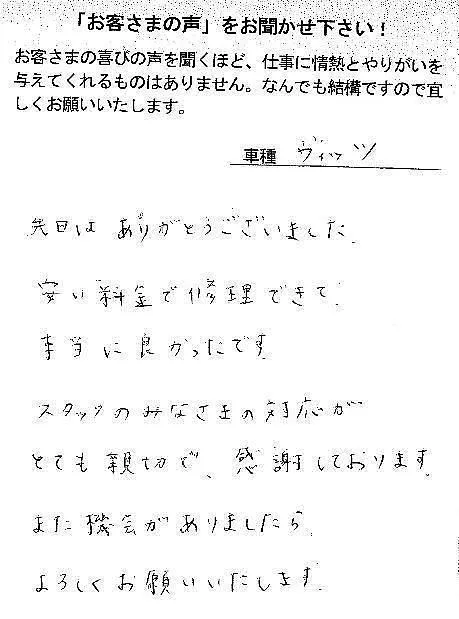 「お客さまの声」をお聞かせ下さい！
お客さまの喜びの声を聞くほど、仕事に情熱とやりがいを
与えてくれるものはありません。なんでも結構ですので宜
しくお願いいたします。
車種 ヴィッツ
先日は ありがとうございました.
安い料金で修理できて.
本当に良かったです.
スタッフのみなさまの対応が
とても親切で、感謝しております.
また機会がありましたら.
よろしくお願いいたします.